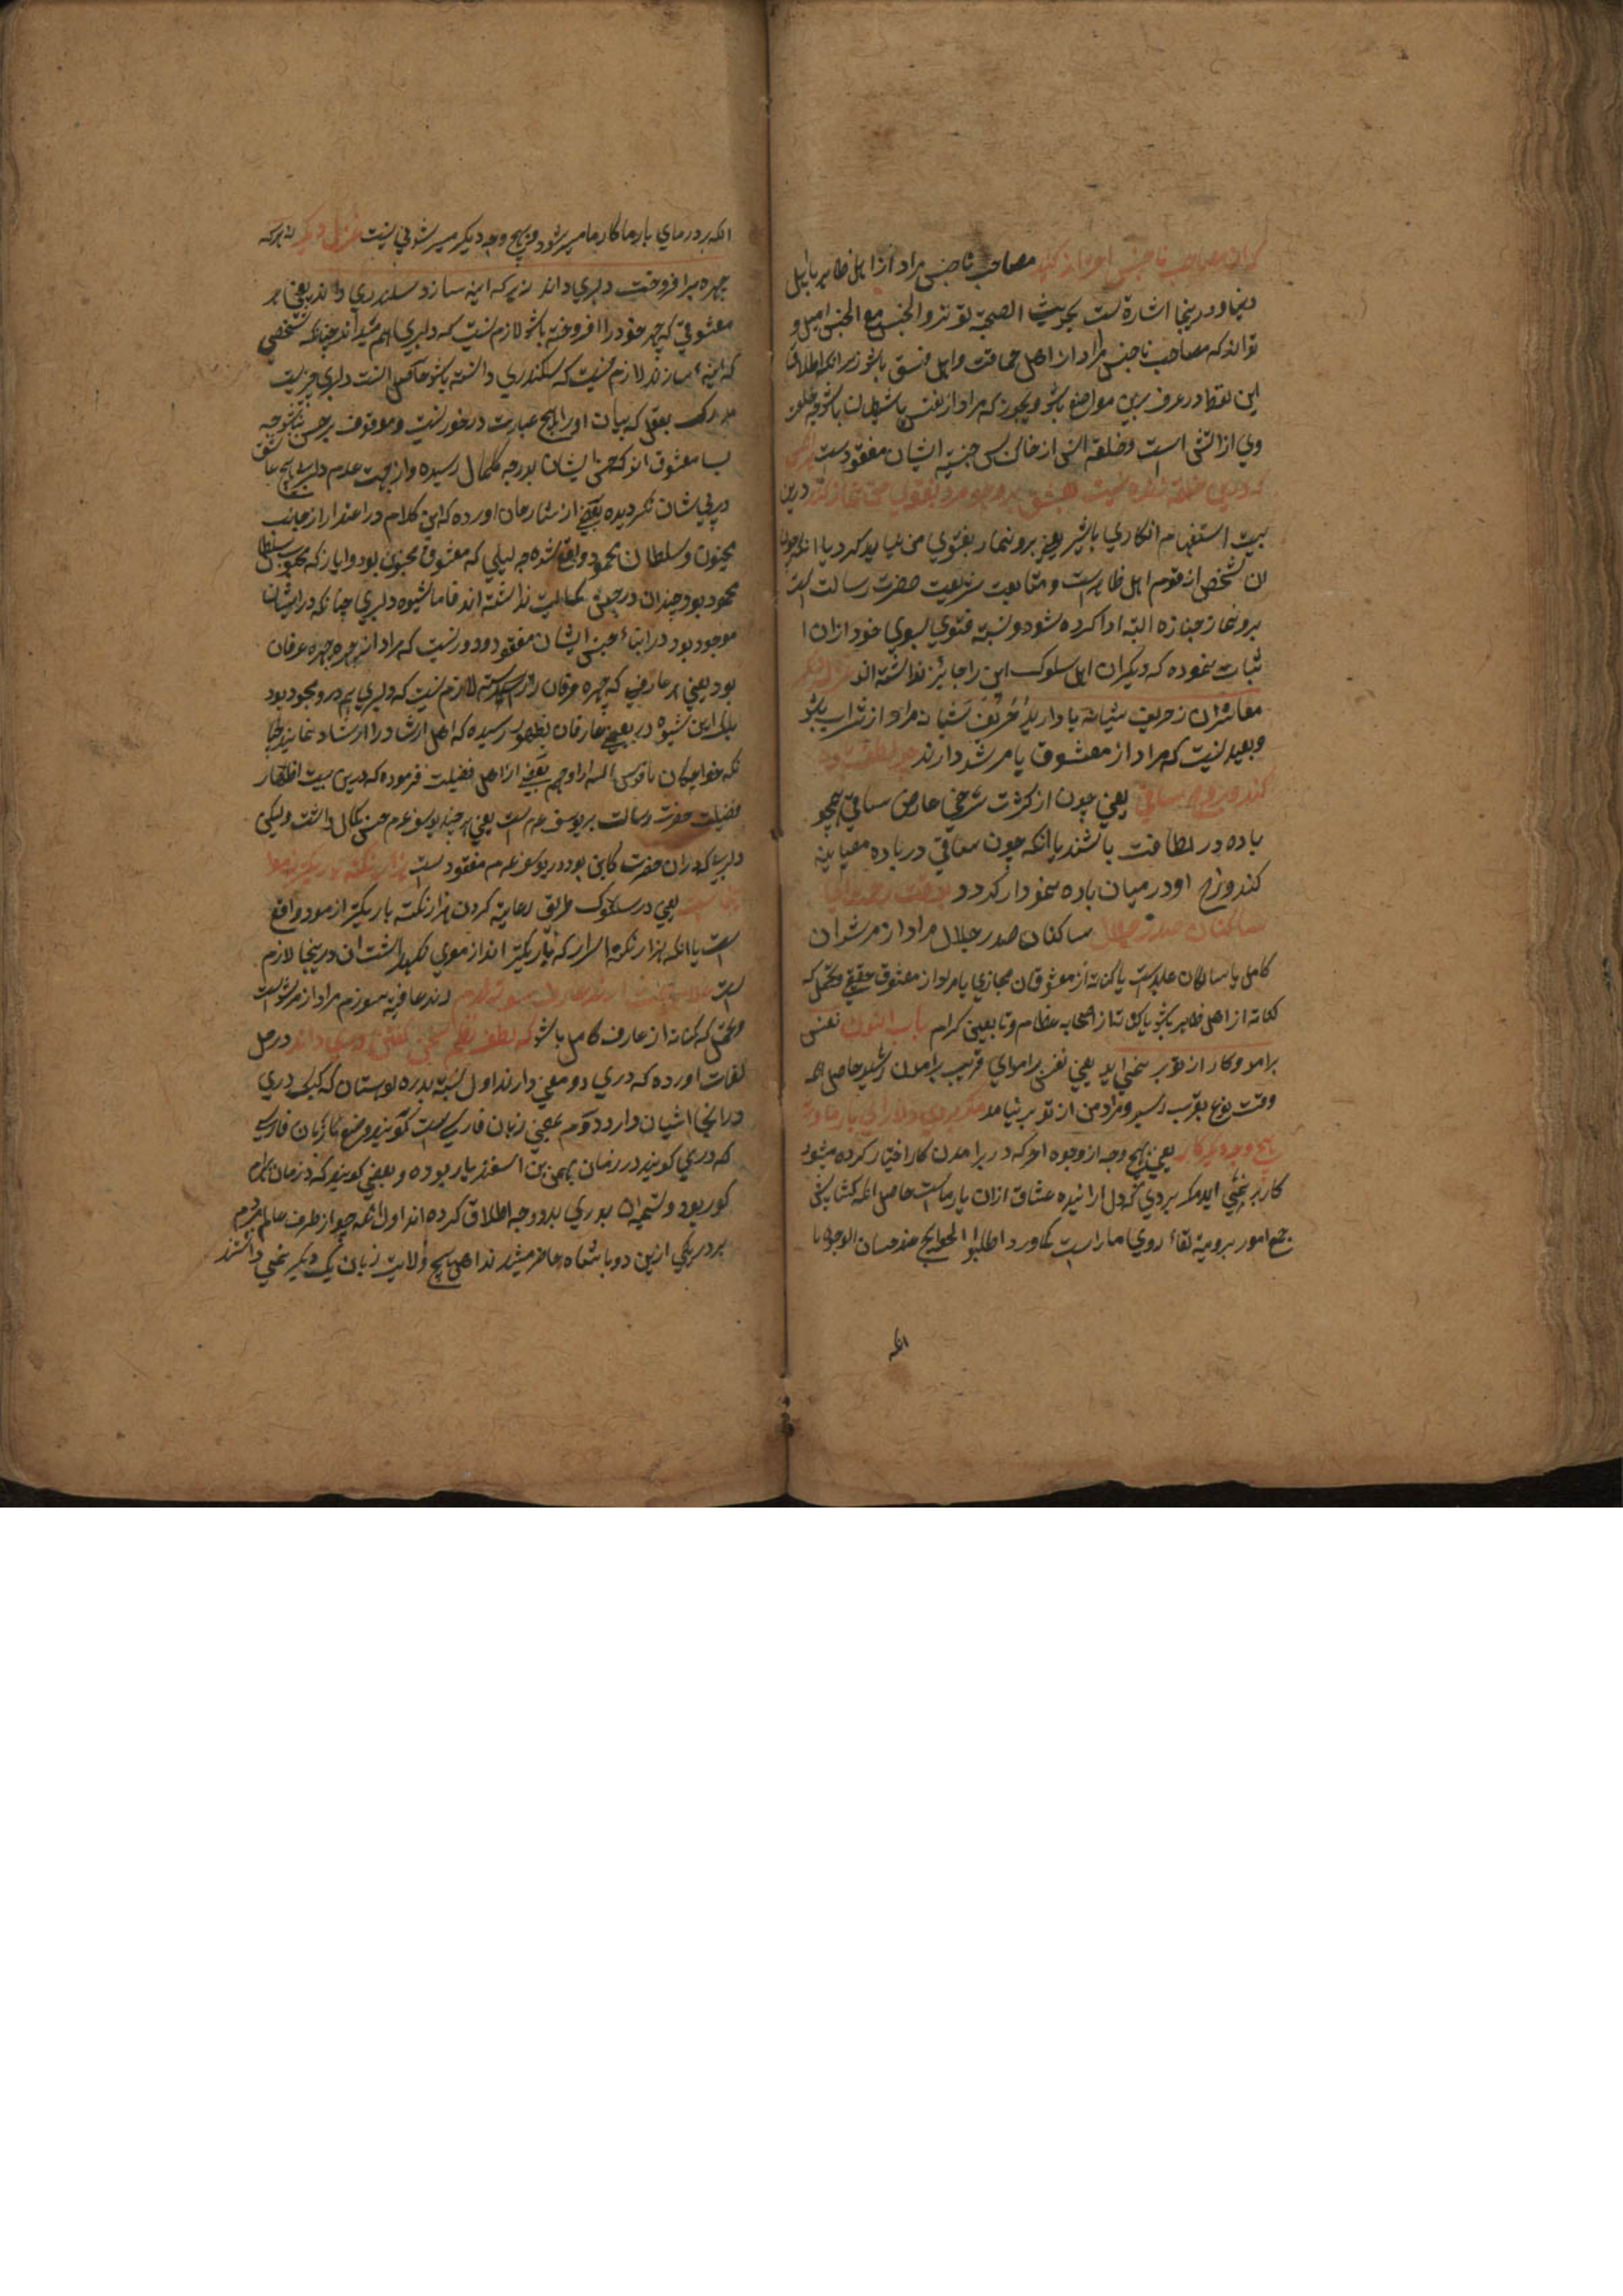 که از مصاحب ناجنس احتراز کنید مصاحب ناجنس مراد از اهل ظاهر یا اهل
دنیا و درینجا اشارة است بحدیث الصحبة تؤثر و الجنس مع الجنس امیل و
تواند که مصاحب ناجنس مراد از اهل حماقت و اهل فسق باشد زیرانکه اطلاق
این لفظ در عرف برین مواضع باشد و یجوز که مراد از نفس یا شیطان باشد چه خلقت
وی از آتش است و خلقة انس از خاک پس جنسیة ایشان مفقودست
که درین حلقه زنده نیست بعشق برو نمرده بفتوی من نماز کنید درین
بیت استفهام انکاری باشد یعنی برو نماز بفتوی من نباید کرد یا انکه چون
ان شخص از قوم اهل ظاهرست و متابعت شریعت حضرت رسالت
برو نماز جنازه البته ادا کرده شود و نسبة فتوی بسوی خود ازان ا
ثبات نموده که دیگران اهل سلوک این را جایز نداشته اند
معاشران ز حریف شبانه یاد ارید حریف شبانه مراد از شراب باشد
و بعید نیست که مراد از معشوق یا مرشد دارند چو لطف باده
کند در رخ ساقی یعنی چون از کثرت سرخی عارض ساقی همچو
باده در لطافت باشند یا انکه چون ساقی در باده معیاینه
کند و رخ او در میان باده نمودار گردد بوقت
ساکنان صدر جلال ساکنان صدر جلال مراد از مرشدان
کامل یا سالکان عابدست یا کنایه از معشوقان مجازی یا مراد از معشوق حقیقی و محتمل که
کنایه از اهل ظاهر باشد یا کنایه از اصحابه عظام و تابعین کرام باب النون نفس
برامد و کار از تو بر نمی اید یعنی نفس برامدای قریب برامدن رسید حاصل انکه
وقت نزع بقرب رسید و مراد من از تو بر نیامد مگر بروی دلارای یار ما ورنه
بهیچ وجه دیگر کار یعنی بهیچ وجه از وجوه امر که در برامدن کار اختیار کرده میشود
کار بر نمی اید مگر بروی که دل اراینده عشاق ازان یار ماست حاصل انکه کشایش
جمیع امور بروءیة لقاء روی ما راست کما ورد اطلبوا الحوایج عند حسان الوجوه یا
انکه
انکه بر در مای یار ما کار ما میسر شود و بهیچ وجه دیگر میسر شدنی نیست غزل دیگر نه هر که
چهره برافروخت دلبری داند نه هر که اینه سازد سکندری داند یعنی هر
معشوقی که چهره خود را افروخته باشد لازم نیست که دلبری هم میداند چنانکه شخصی
که اینه سازند لازم نیست که سکندری دانسته باشد حاصل انست دلبری چیزیست
مدرک بعقل که بیان او را بهیچ عبارت درخور نیست و موقوف بر حسن نباشد چه
بسا معشوق اند که حسن ایشان بدرجه کمال رسیده و از جهت عدم دلبری هیچ عاشق
در پی شان نکردیده بعضی از شارحان اورده که این کلام در اعتذار از جانب
مجنون و سلطان محمود واقع شده چه لیلی که معشوق مجنون بود و ایاز که محبوب سلطان
محمود بود چندان در حسن کمالیت نداشته اند فاما شیوه دلبری چنانکه در ایشان
موجود بود در ابناء جنس ایشان مفقود و دور نیست که مراد از چهره چهره عرفان
بود یعنی هر عارفی که چهره عرفان لازم نیست که دلبری هم درو موجود بود
بلکه این شیوه در بعضی عارفان بظهور رسیده که اهل ارشاد را ارشاد نمایند چنا
نکه خواجگان ما قدس الله ارواحهم بعضی از اهل فضیلت فرموده که درین بیت اظهار
فضیلت حضرت رسالت بر یوسف عم است یعنی هر چند یوسف عم حسن بکمال داشت ولیکن
دلبری که دران حضرت کاین بود در یوسف عم مفقودست هزار نکته باریکتر ز مو
اینجاست یعنی در سلوک طریق رعایة کردن هزار نکته باریکتر از مو واقع
است یا انکه هزار نکته اسرار که باریکتر اند از موی نگهداشت ان درینجا لازم
است غلام همت ان رند عافیت سوزم رند عافیه سوزم مراد از مرشد است
و محتمل که کنایه از عارف کامل باشد که لطف نظم سخن گفتن دری داند در حل
لغات اورده که دری دو معنی دارند اول نسبة بدره کوستان که کبک دری
در انجا اشیان دارد دوم یعنی زبان فارسی است گویند وضع زبان فارسی
که دری کویند در زمان بهمن بن اسفندیار بوده و بعضی کویند که در زمان بهرام
کور بود و تسمیه ان بدری بدو وجه اطلاق کرده اند اول انکه چو از طرف عالم مردم
بر در یکی ازین دو باشاه حاضر میشدند اهل هیچ ولایت زبان یک دیگر نمی دانستند